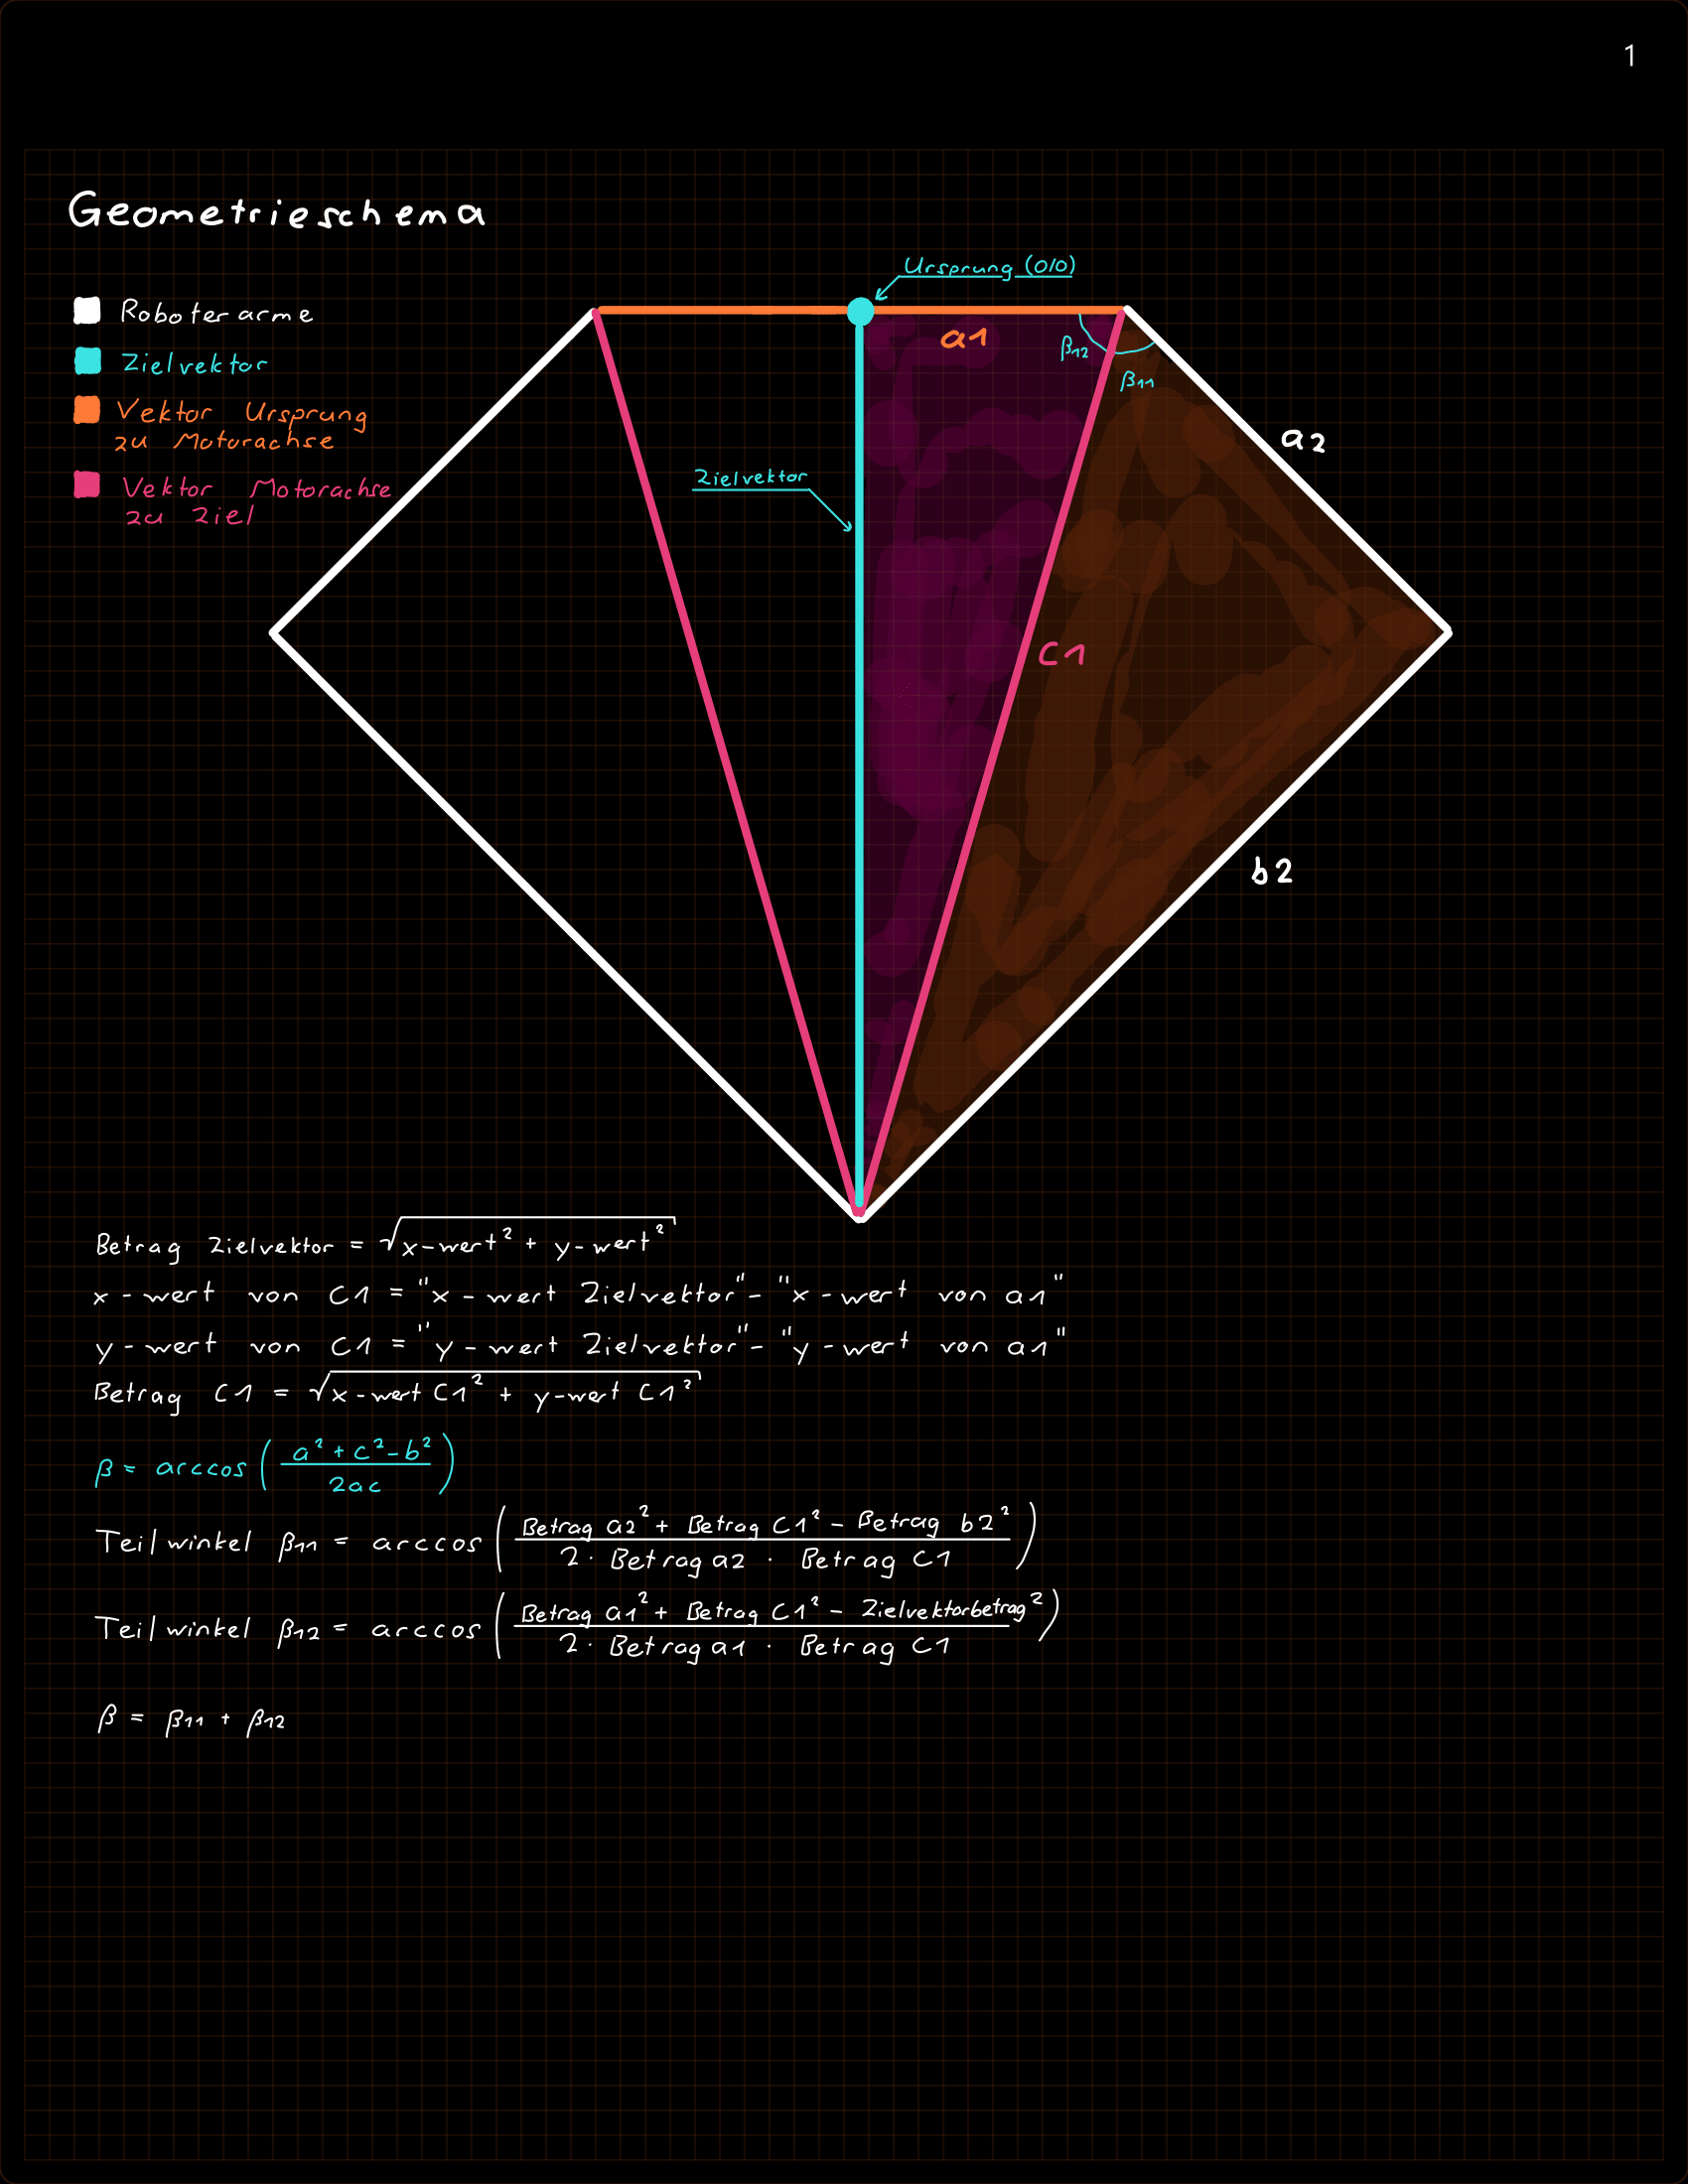 1
Geometrieschema
Ursprung (0/0)
Roboterarme
Zielvektor
Vektor Ursprung
zu Motorachse
Vektor Motorachse
zu Ziel
a1
β12
β11
a2
Zielvektor
C1
b2
Betrag Zielvektor = √(x-wert² + y-wert²)
x-wert von C1 = "x-wert Zielvektor" - "x-wert von a1"
y-wert von C1 = "y-wert Zielvektor" - "y-wert von a1"
Betrag C1 = √(x-wert C1² + y-wert C1²)
β = arccos((a² + c² - b²) / 2ac)
Teilwinkel β11 = arccos((Betrag a2² + Betrag C1² - Betrag b2²) / (2 · Betrag a2 · Betrag C1))
Teilwinkel β12 = arccos((Betrag a1² + Betrag C1² - Zielvektorbetrag²) / (2 · Betrag a1 · Betrag C1))
β = β11 + β12